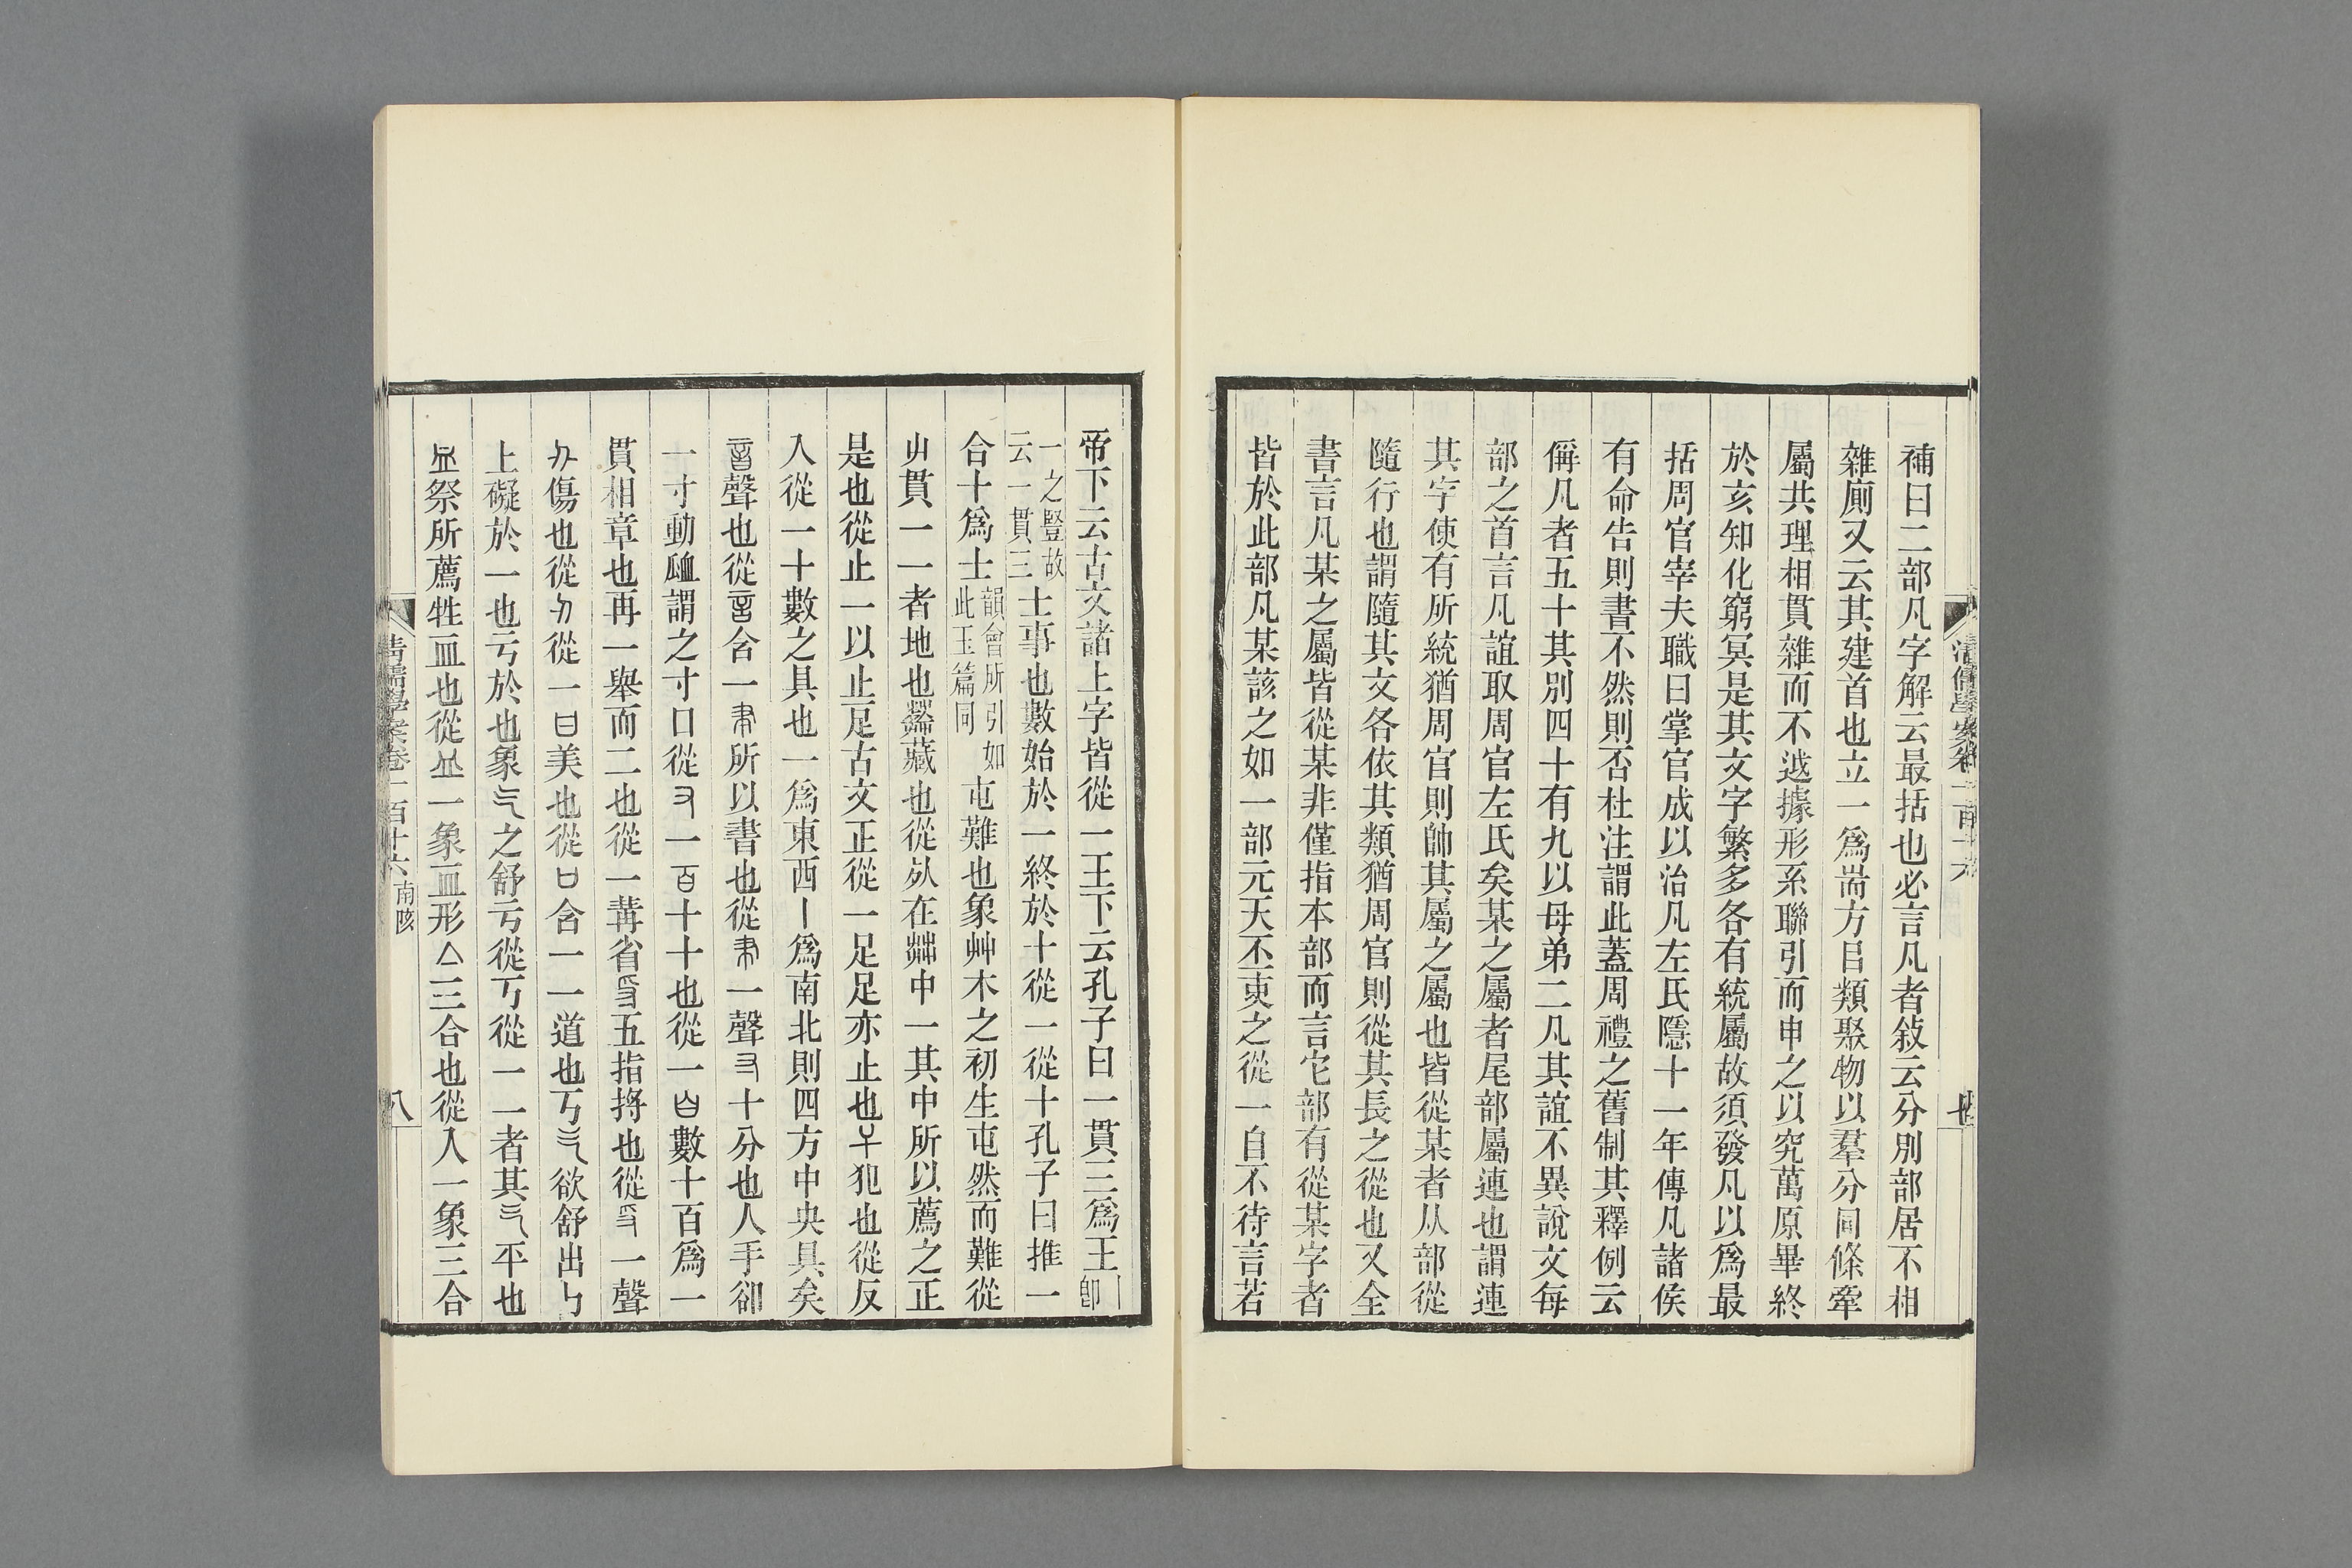 補曰二部凡字解云最括也必言凡者敍云分別部居不相
雜廁又云其建首也立一爲耑方㠯類聚物以羣分同條牽
屬共理相貫雜而不越據形系聯引而申之以究萬原畢終
於亥知化窮冥是其文字繁多各有統屬故須發凡以爲最
括周官宰夫職曰掌官成以治凡左氏隱十一年傳凡諸侯
有命告則書不然則否杜注謂此蓋周禮之舊制其釋例云
偁凡者五十其別四十有九以母弟二凡其誼不異說文每
部之首言凡誼取周官左氏矣某之屬者尾部屬連也謂連
其字使有所統猶周官則帥其屬之屬也皆從某者从部從
隨行也謂隨其文各依其類猶周官則從其長之從也又全
書言凡某之屬皆從某非僅指本部而言它部有從某字者
皆於此部凡某該之如一部元天丕吏之從一自不待言若
帝下云古文諸上字皆從一王下云孔子曰一貫三爲王丨卽
一之豎故云一貫三士事也數始於一終於十從一從十孔子曰推一
合十爲士韻會所引如此玉篇同屯難也象艸木之初生屯然而難從
屮貫一一者地也葬藏也從死在茻中一其中所以薦之正
是也從止一以止足古文正從一足足亦止也𢆉犯也從反
入從一十數之具也一爲東西丨爲南北則四方中央具矣
音聲也從言含一聿所以書也從𦘒一聲寸十分也人手卻
一寸動𧖴謂之寸口從又一百十十也從一白數十百爲一
貫相章也再一舉而二也從一冓省寽五指捋也從𠬪一聲
刅傷也從刃從一甘美也從口含一一道也丂气欲舒出ㄣ
上礙於一也亏於也象气之舒亏從丂從一一者其气平也
血祭所薦牲血也從皿一象血形亼三合也從入一象三合
清儒學案卷二百十六 南陔
八